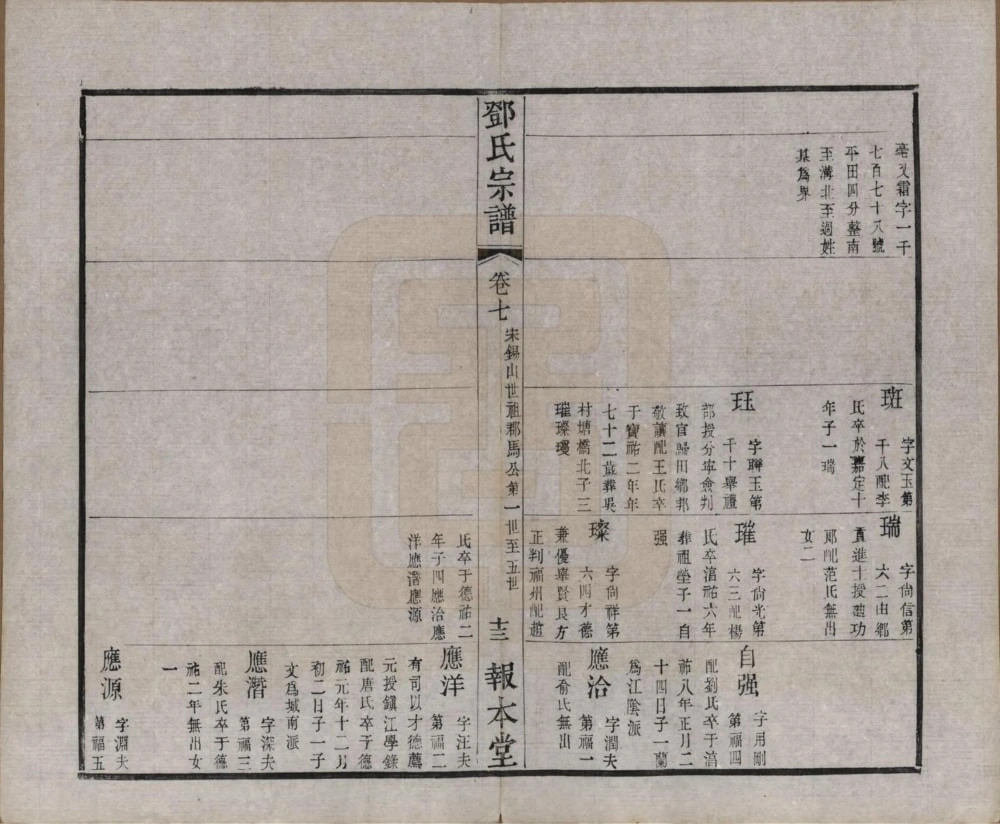 亳又霜字一千
七百七十八號
平田四分整南
至溝北至過姓
某為界
班
字文玉第
千八配李
氏卒於嘉定十
年子一瑞
玨
字聯玉第
千十舉禮
部授分寧僉判
致官歸田鄉邦
敬讓配王氏卒
于寶祐二年年
七十二歲葬吳
村塘橋北子三
璀璨瓊
瑞
字尚信第
六二由鄉
貢進士授迪功
郎配范氏無出
女二
璀
字尚光第
六三配楊
氏卒湻祐六年
葬祖塋子一自
强
璨
字尚祥第
六四才德
兼優舉賢良方
正判福州配趙
自强
字用剛
第福四
配劉氏卒于湻
祐八年正月二
十四日子一蘭
為江陰派
應洽
字潤夫
第福一
配俞氏無出
鄧氏宗譜
卷七
宋錫山世祖郡馬公第一世至五世
十三
報本堂
氏卒于德祐二
年子四應洽應
洋應濳應源
應洋
字汪夫
第福二
有司以才德薦
元授鎮江學錄
配唐氏卒于德
祐元年十二月
初二日子一子
文為城南派
應濳
字深夫
第福三
配朱氏卒于德
祐二年無出女
一
應源
字淵夫
第福五